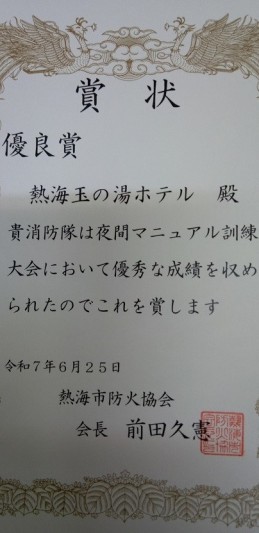 賞状
優良賞
熱海玉の湯ホテル 殿
貴消防隊は夜間マニュアル訓練
大会において優秀な成績を収め
られたのでこれを賞します
令和7年6月25日
熱海市防火協会
会長 前田久憲